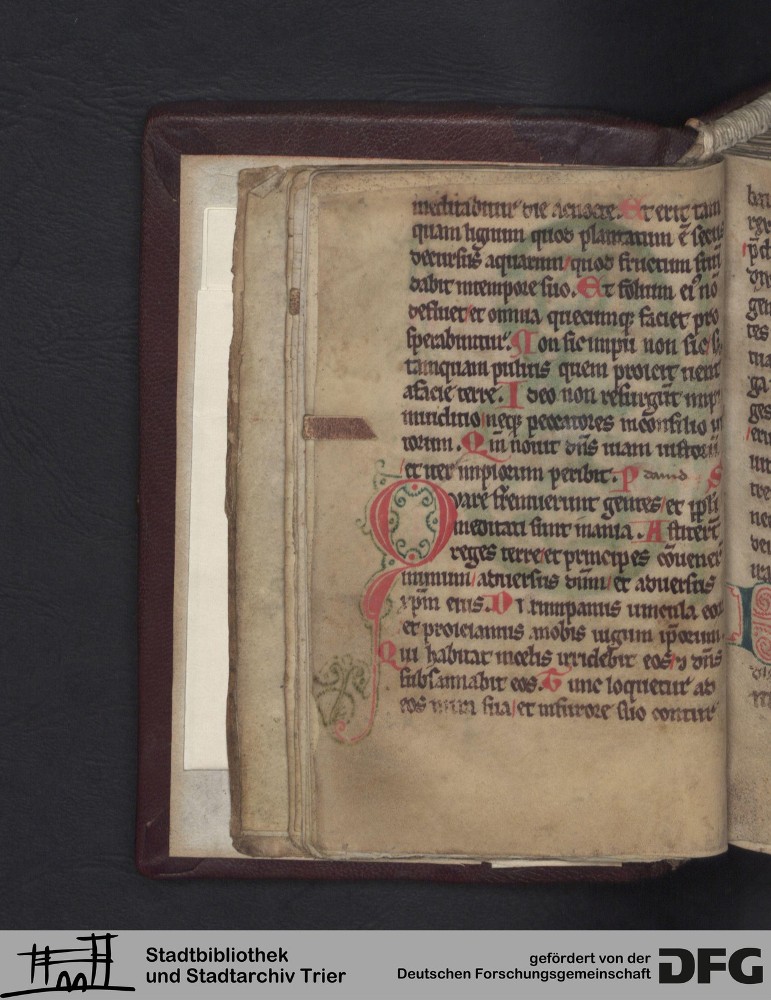 meditabitur die ac nocte. Et erit tam
quam lignum quod plantatum ē secus
decursus aquarum / quod fructum suū
dabit in tempore suo. Et folium eiꝰ nō
defluet / et omnia quecumqꝫ faciet pro
sperabuntur. Non sic impii non sic / s;
tamquam puluis quem proicit uent
a facie terre. Ideo non resurgūt impi
in iuditio / neqꝫ peccatores in consilio iu
storum. Qm̄ nouit dn̄s uiam iustorū
/ et iter impiorum peribit. P dauid. S
Quare fremuerunt gentes / et ip̄li
meditati sunt inania. Astiterūt
reges terre / et principes cōuener̄
in unum / aduersus dūm / et aduersus
xp̄m eius. Dirumpamus uincula eoꝝ
et proiciamus a nobis iugum ip̄orum.
Qui habitat in celis irridebit eos / ⁊ dn̄s
subsannabit eos. Tunc loquetur ad
eos in ira sua / et in furore suo contur
Stadtbibliothek
und Stadtarchiv Trier
gefördert von der
Deutschen Forschungsgemeinschaft
DFG